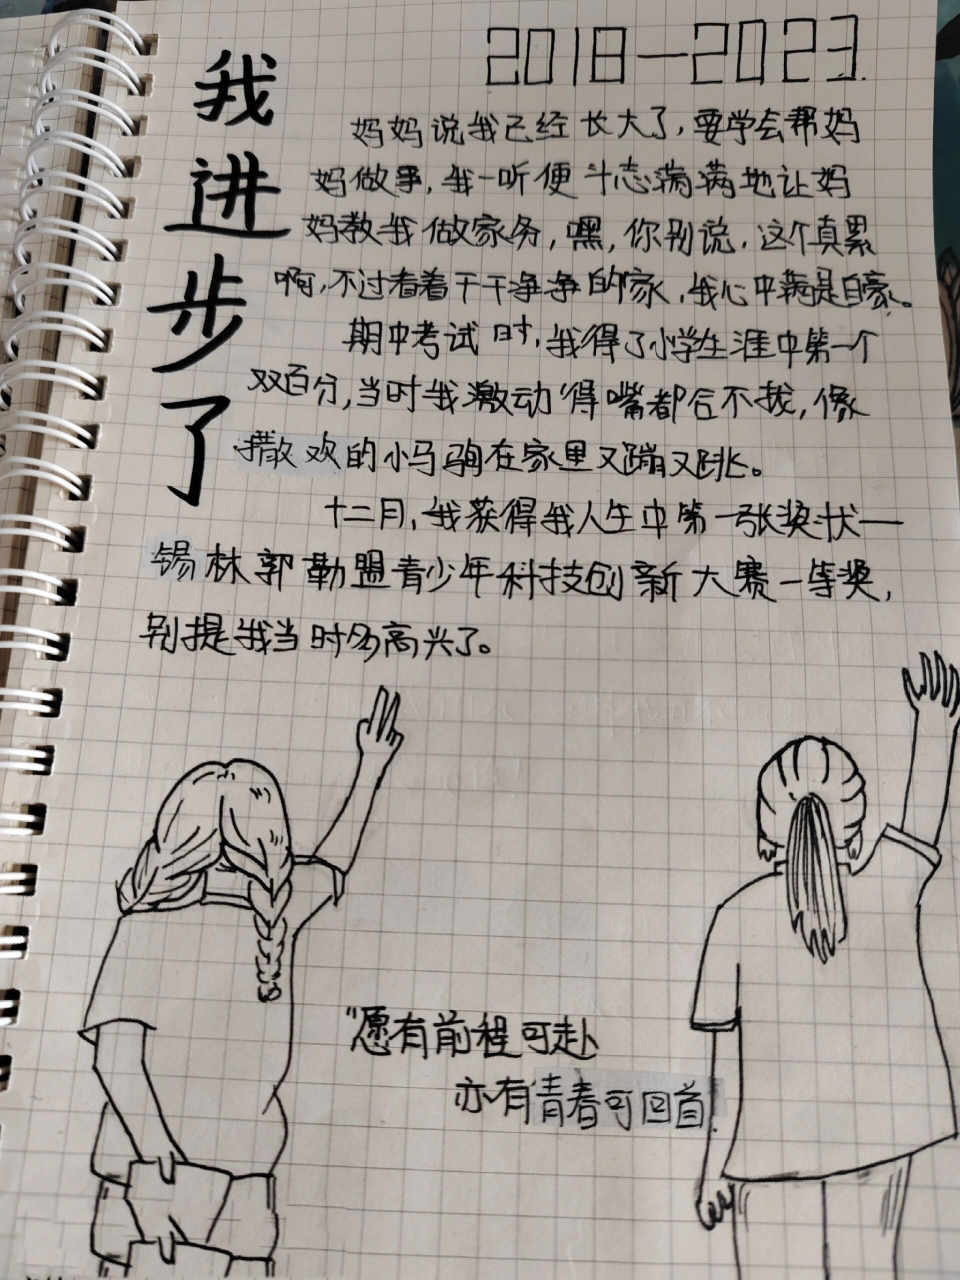 我进步了
2018—2023.
妈妈说我已经长大了,要学会帮妈
妈做事,我一听便斗志满满地让妈
妈教我做家务,嘿,你别说,这个真累
啊,不过看着干干净净的家,我心中满是自豪。
期中考试时,我得了小学生涯中第一个
双百分,当时我激动得嘴都合不拢,像
撒欢的小马驹在家里又蹦又跳。
十二月,我获得我人生中第一张奖状—
锡林郭勒盟青少年科技创新大赛一等奖,
别提我当时多高兴了。
"愿有前程可赴
亦有青春可回首